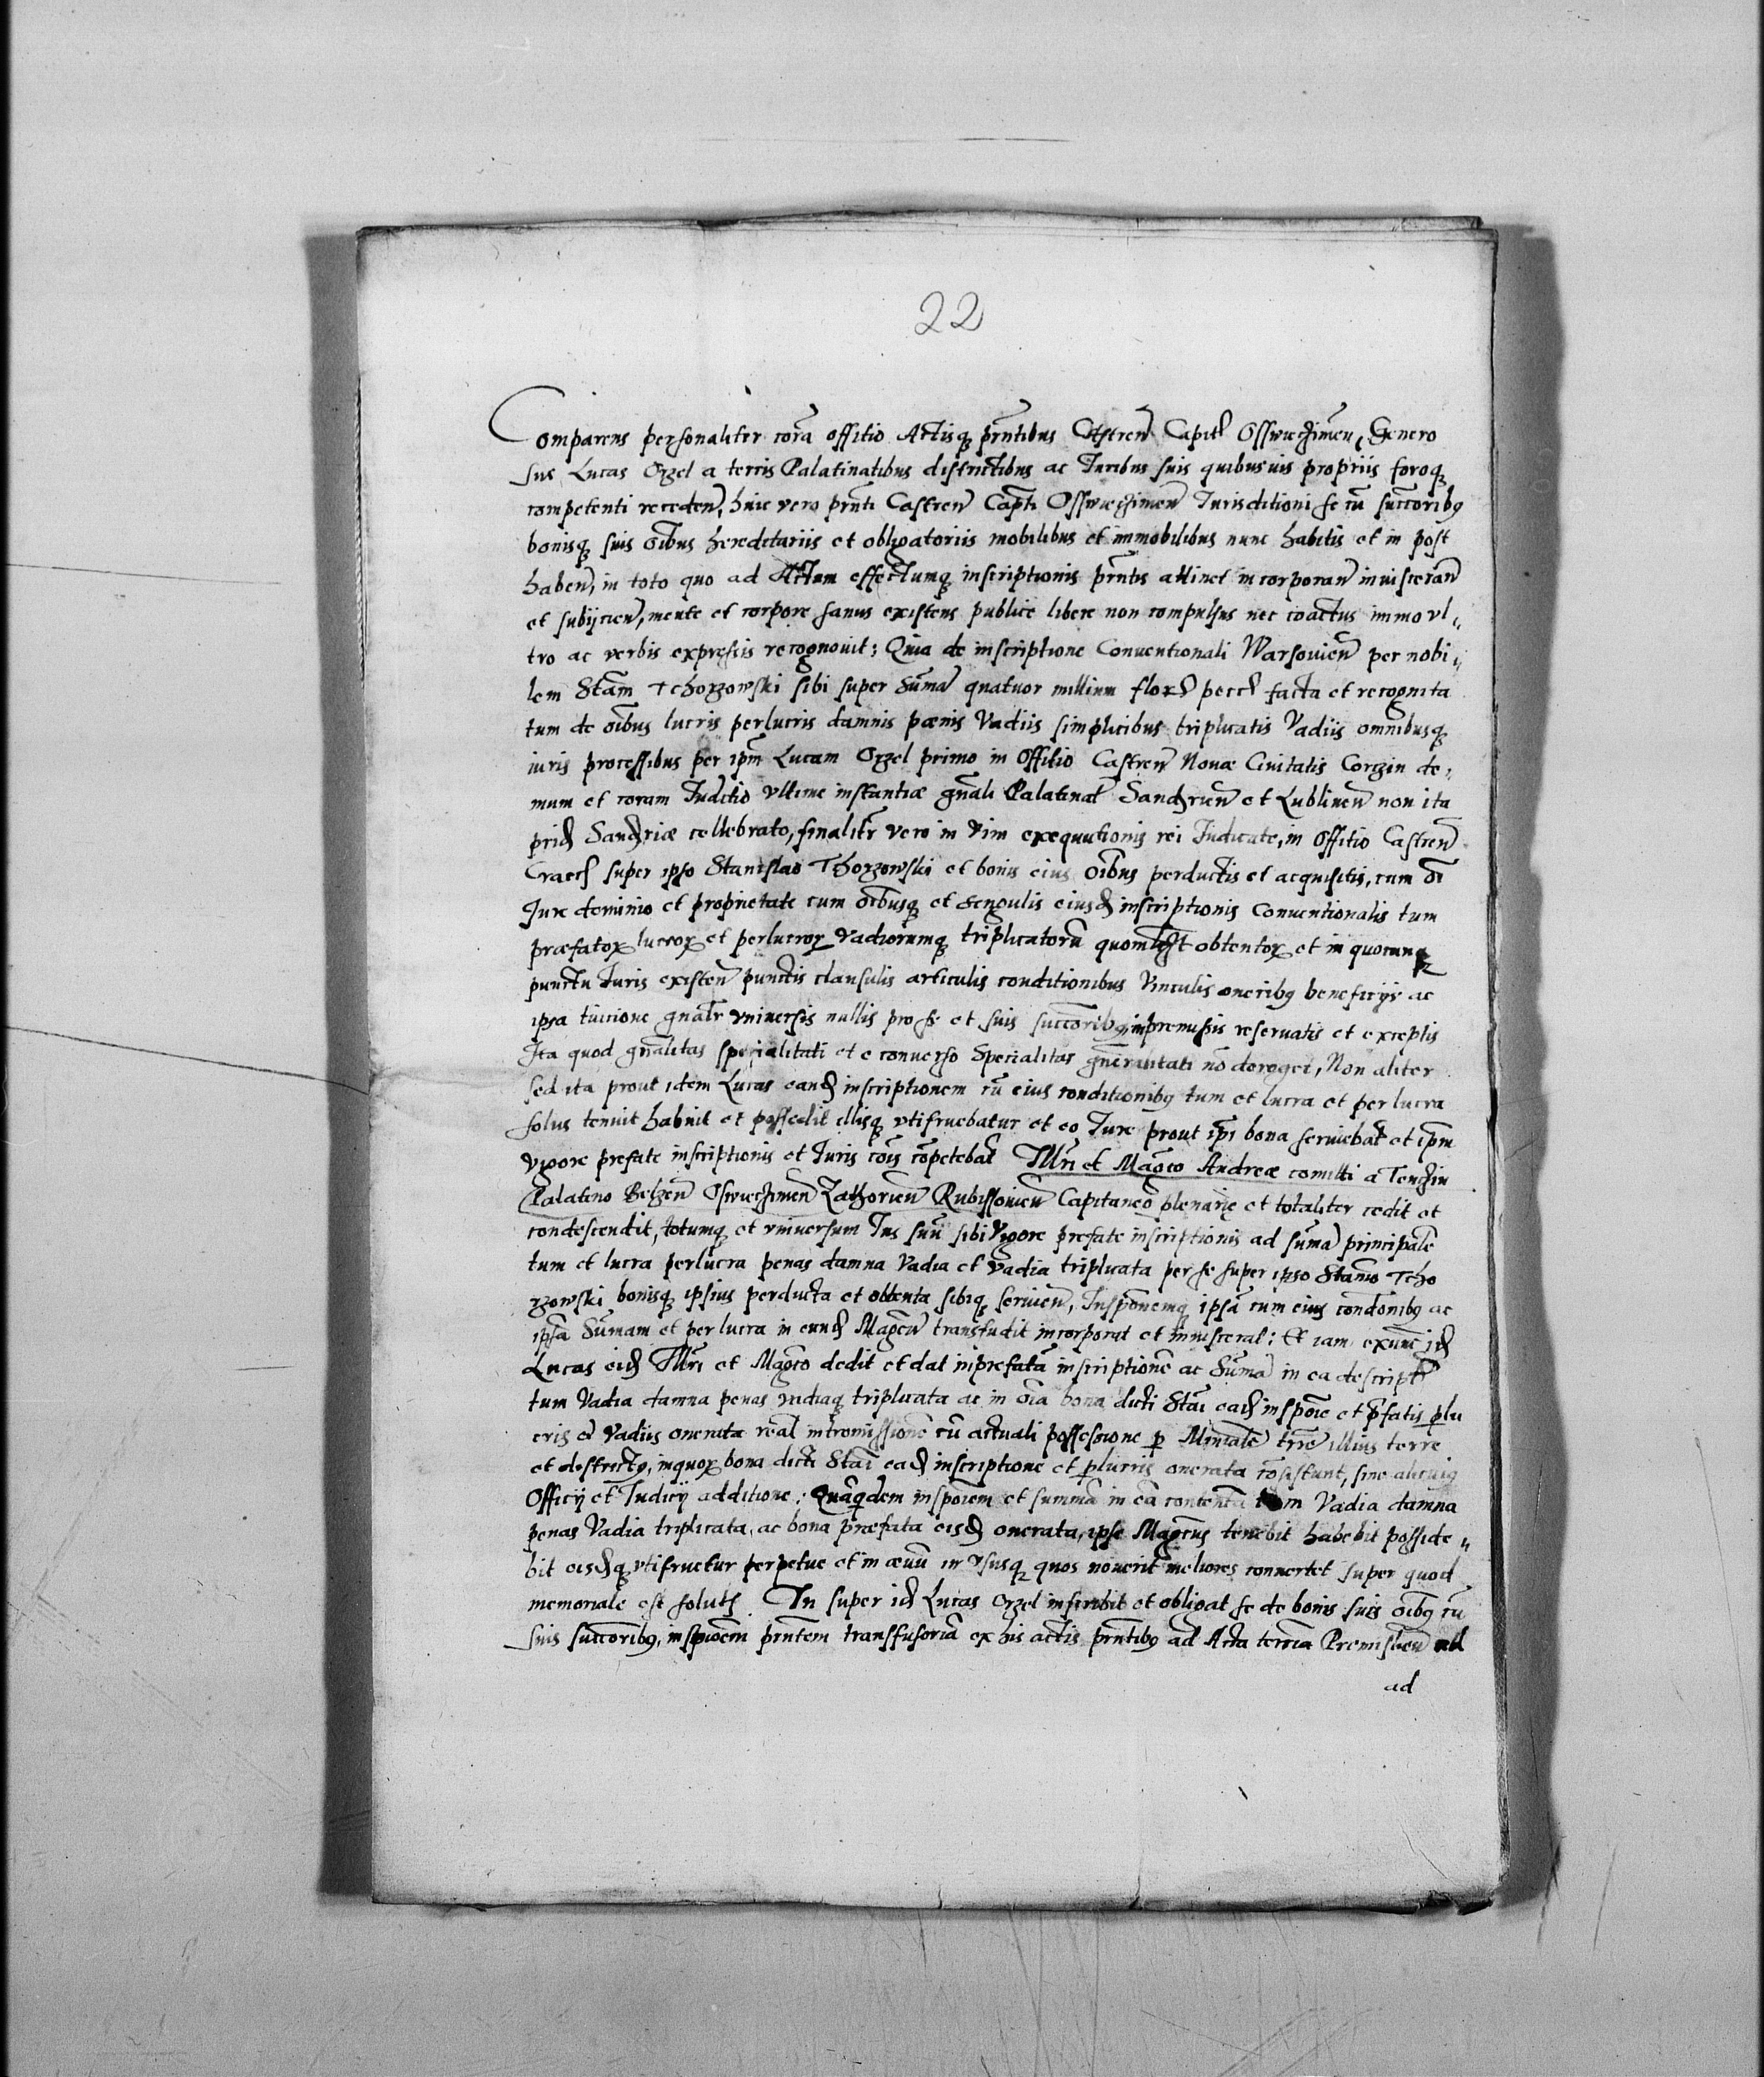 22
Comparens personaliter corã offitio Actisq̃ prñtibus Castreñ Capitł Osswieczimeñ, Genero
sus Lucas Orzel a terris Palatinatibus districtibus ac Iuribus suis quibusuis propriis foroq̃
competenti recedeñ, huic vero prñti Castreñ Capti Osswieczimeñ Iurisditioni se cũ succoribq
bonisq̃ suis õibus hereditariis et obligatoriis mobilibus et immobilibus nunc habitis et in post
habeñ, in toto quo ad Actum effectumq̃ inscriptionis prñtis attinet incorporañ inuiscerañ
et subijcieñ, mente et corpore sanus existens publice libere non compulsus nec coactus immo vl„
tro ac verbis expressis recognouit: Quia de inscriptione Conuentionali Warsouieñ per nobi„
lem Stãm Tchorzowski sibi super Sumã quatuor millium flor pecc facta et recognita
tum de õibus lucris perlucris damnis pœnis Vadiis simplicibus triplicatis Vadiis omnibusq̃
iuris processibus per ipm̃ Lucam Orzel primo in Offitio Castreñ Nouæ Ciuitatis Corczin de„
mum et coram Iuditio vltime instantiæ gñali Palatinał Sandrieñ et Lublineñ non ita
prid Sandriæ cellebrato, finalitr̃ vero in Vim exequutionis rei Iudicate, in Offitio Castreñ
Cracƺ super ipso Stanislao Tchorzowski et bonis eius õibus perductis et acquisitis, cum õi
Iure dominio et proprietate cum õibusq̃ et singulis eiusd inscriptionis Conuentionalis tum
præfatoꝝ lucroꝝ et perlucroꝝ vadiorumq̃ triplicatorũ quomłt obtentoꝝ et in quocunq̃
punctu Iuris existeñ punctis clausulis articulis conditionibus Vinculis oneribq beneficijs ac
ipsa tuitione gñalr̃ vniuersis nullis pro se et suis succoribq in premissis reseruatis et exceptis
Ita quod gñalitas specialitati et e conuerso Specialitas gñeralitati nõ deroget, Non aliter
sed ita prout idem Lucas eand inscriptionem cũ eius conditionibq tum et lucra et perlucra
solus tenuit habuit et possedit illisq̃ vtifruebatur et eo Iure prout ipi bona seruiebat et ipm
vigore prefate inscriptionis et Iuris cõis cõpetebat Illri et Magco Andreæ comitti a Tenczin
Palatino Belzeñ Oswieczimeñ Zathorieñ Rubissouieñ Capitaneo plenarie et totaliter cedit et
condescendit, totumq̃ et vniuersum Ius suũ sibi Vigore prefate inscriptionis ad sumã principalẽ
tum et lucra perlucra penas damna Vadia et vadia triplicata per se super ipso Stanio Tcho
rzowski bonisq̃ ipsius perducta et obtenta sibiq̃ seruieñ, Insponemq̃ ipsã cum eius condonibq ac
ipsã Sumam et perlucra in eund Magcũ transfudit incorporat et inuiscerat: Et iam exunc id
Lucas eid Illri et Magco dedit et dat in prefatã inscriptionẽ ac Sumã in ea descript
tum Vadia damna penas vadiaq̃ triplicata ac in õia bona dicti Stai ead inspõie et p̃fatis plu
cris et Vadiis onerata real intromissionẽ cũ actuali possessione ꝑ Minialẽ trre illius terre
et districtq, in quoꝝ bona dicti Stai ead inscriptione et ꝑlucris onerata cõsistunt, sine alicuiq
Officij et Iudicij additione: Quãquidem inspoiem et summã in ea contentã tum Vadia damna
penas Vadia triplicata, ac bona præfata eisd onerata, ipse Magcus tenebit habebit posside„
bit eisdq̃ vtifruetur perpetue et in æuũ in vsusq̃ quos nouerit meliores conuertet super quod
memoriale est solutƺ In super id Lucas Orzel inscribit et obligat se de bonis suis oibq cũ
suis succoribq, inspioem prñtem transfusoriã ex his actis prñtibq ad Acta terria Premislieñ
ad